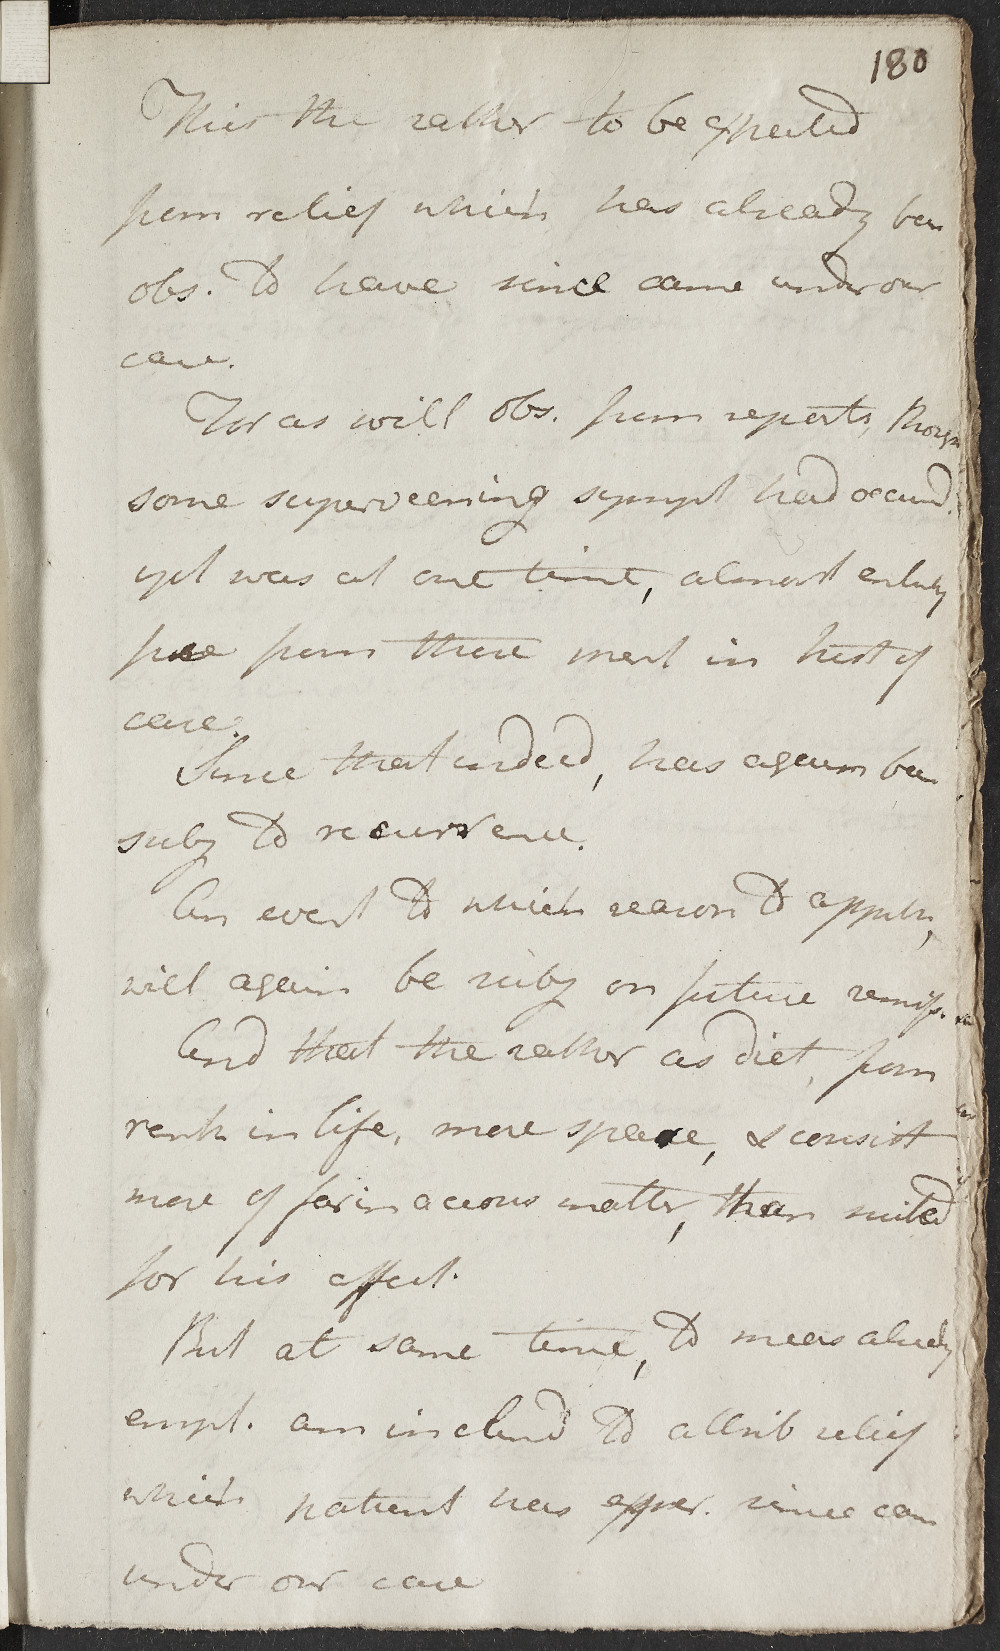 180
This the rather to be expected
from relief which has already been
obs. to have since came under our
care.
For as will obs. from reports, though
some superveening sympt had occurred.
yet was at one time, almost entirely
free from those ment in hist of
case.
Since that indeed, has again been
subj to recurrence.
An event to which reason to appreh,
will again be subj on future
And that the rather as diet, from
rank in life, more sparse, & consist
more of farinaceous matter, than suited
for his affect.
But at same time, to meas already
empl. am inclined to attrib relief
which patient has exper. since came
under our care